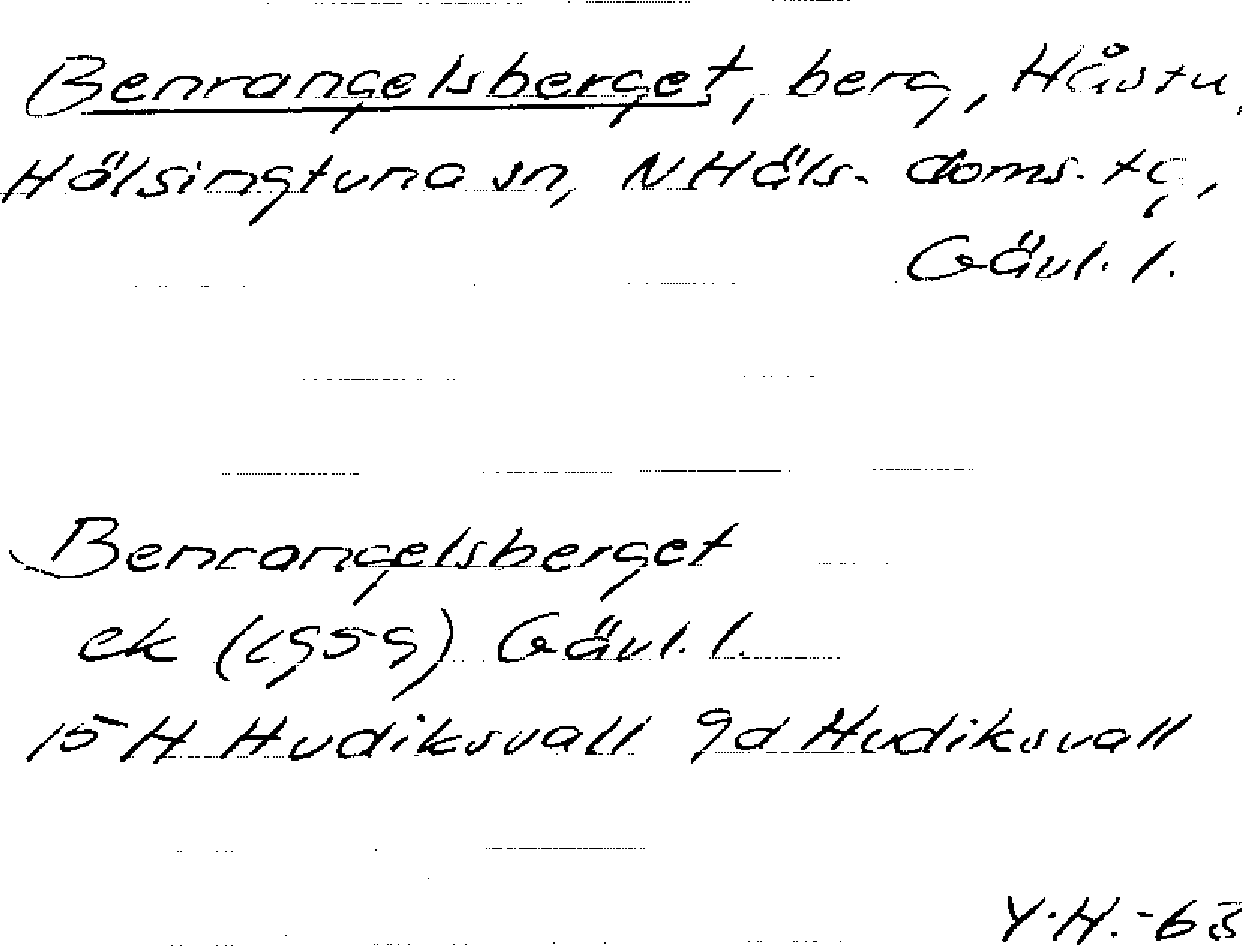 Benrangelsberget, berg, Håsta,
Hälsingtuna sn, N Häls. doms. tg,
Gävl. l.
Benrangelsberget
ek (1959) Gävl. l.
15 H Hudiksvall 9d Hudiksvall
Y.H. -63